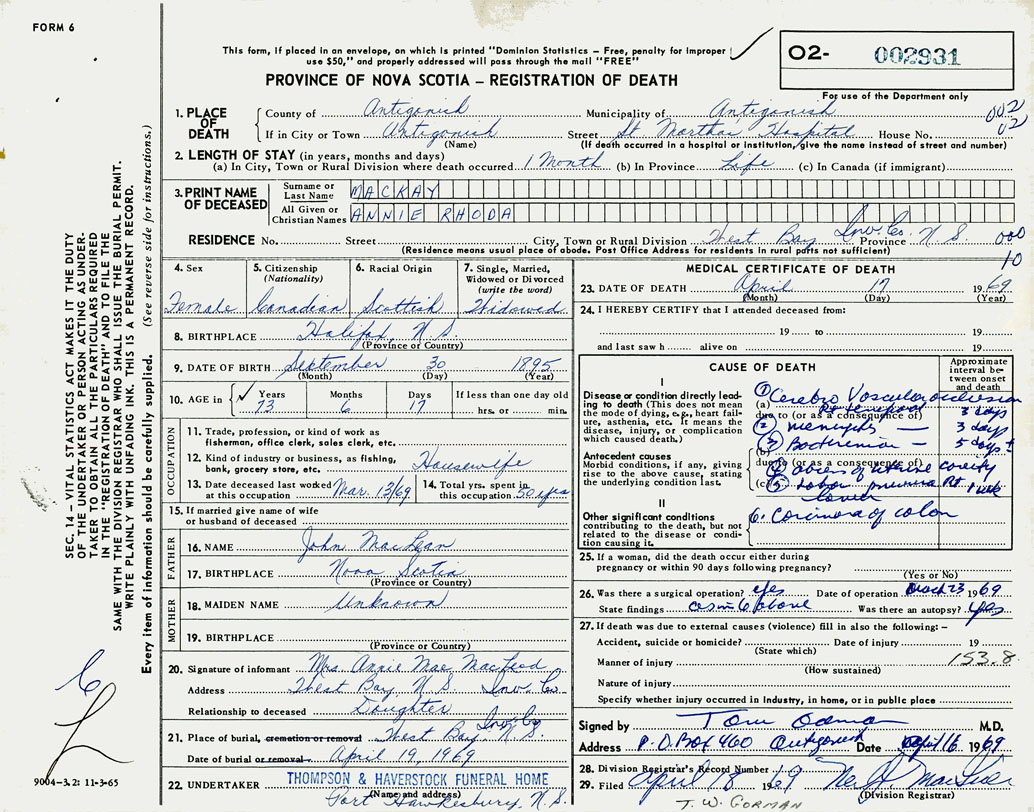 FORM 6
This form, if placed in an envelope, on which is printed "Dominion Statistics – Free, penalty for improper
use $50," and properly addressed will pass through the mail "FREE"
O2- 002931
For use of the Department only
PROVINCE OF NOVA SCOTIA – REGISTRATION OF DEATH
1. PLACE OF DEATH
County of Antigonish Municipality of Antigonish 002
If in City or Town Antigonish Street St Martha's Hospital House No. 02
(Name) (If death occurred in a hospital or institution, give the name instead of street and number)
2. LENGTH OF STAY (in years, months and days)
(a) In City, Town or Rural Division where death occurred 1 Month (b) In Province Life (c) In Canada (if immigrant)
3. PRINT NAME OF DECEASED
Surname or Last Name MACKAY
All Given or Christian Names ANNIE RHODA
RESIDENCE No. Street City, Town or Rural Division West Bay Inv. Co. Province N. S. 000
(Residence means usual place of abode. Post Office Address for residents in rural parts not sufficient) 10
4. Sex Female
5. Citizenship (Nationality) Canadian
6. Racial Origin Scottish
7. Single, Married, Widowed or Divorced (write the word) Widowed
8. BIRTHPLACE Halifax, N. S.
(Province or Country)
9. DATE OF BIRTH September 30 1895
(Month) (Day) (Year)
10. AGE in Years 73 Months 6 Days 17 If less than one day old hrs. or min.
OCCUPATION
11. Trade, profession or kind of work as fisherman, office clerk, sales clerk, etc.
12. Kind of industry or business, as fishing, bank, grocery store, etc. Housewife
13. Date deceased last worked at this occupation Mar. 13/69
14. Total yrs. spent in this occupation 50 yrs
15. If married give name of wife or husband of deceased
FATHER
16. NAME John MacLean
17. BIRTHPLACE Nova Scotia
(Province or Country)
MOTHER
18. MAIDEN NAME Unknown
19. BIRTHPLACE
(Province or Country)
20. Signature of informant Mrs. Annie Mae MacLeod
Address West Bay, N. S. Inv. Co.
Relationship to deceased Daughter
21. Place of burial, cremation or removal West Bay, Inv. Co. N. S.
Date of burial or removal April 19, 1969
22. UNDERTAKER THOMPSON & HAVERSTOCK FUNERAL HOME
(Name and address)
Port Hawkesbury, N. S.
MEDICAL CERTIFICATE OF DEATH
23. DATE OF DEATH April 17 1969
(Month) (Day) (Year)
24. I HEREBY CERTIFY that I attended deceased from:
19 to 19
and last saw h alive on 19
CAUSE OF DEATH
Approximate interval between onset and death
I
Disease or condition directly leading to death (This does not mean the mode of dying, e.g., heart failure, asthenia, etc. It means the disease, injury, or complication which caused death.)
(a) 1 Cerebro Vascular occlusion 3 days
due to (or as a consequence of)
2 meningitis — 3 days
3 — 5 days ±
Antecedent causes
Morbid conditions, if any, giving rise to the above cause, stating the underlying condition last.
(b)
due to (or as a consequence of)
(c) 5 Rt 1 wk
lower
II
Other significant conditions contributing to the death, but not related to the disease or condition causing it.
6. of colon
25. If a woman, did the death occur either during pregnancy or within 90 days following pregnancy?
(Yes or No)
26. Was there a surgical operation? yes Date of operation March 23 1969
State findings as in 6 above Was there an autopsy? yes
27. If death was due to external causes (violence) fill in also the following: –
Accident, suicide or homicide? Date of injury 19
(State which)
Manner of injury 153.8
(How sustained)
Nature of injury
Specify whether injury occurred in industry, in home, or in public place
Signed by Tom Gorman M.D.
Address P.O. Box 460 Antigonish Date 1969
28. Division Registrar's Record Number
29. Filed April 18 1969
(Division Registrar)
T. W. GORMAN
SEC. 14 – VITAL STATISTICS ACT MAKES IT THE DUTY
OF THE UNDERTAKER OR PERSON ACTING AS UNDER-
TAKER TO OBTAIN ALL THE PARTICULARS REQUIRED
IN THE "REGISTRATION OF DEATH" AND TO FILE THE
SAME WITH THE DIVISION REGISTRAR WHO SHALL ISSUE THE BURIAL PERMIT.
WRITE PLAINLY WITH UNFADING INK. THIS IS A PERMANENT RECORD.
Every item of information should be carefully supplied. (See reverse side for instructions.)
9004-3.2: 11-3-65